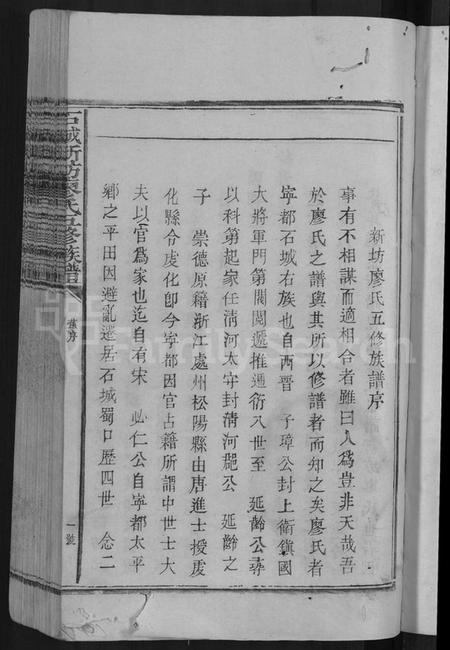 新坊廖氏五修族譜序
事有不相謀而適相合者雖曰人為豈非天哉吾
於廖氏之譜與其所以修譜者而知之矣廖氏者
寧都石城右族也自西晋 子璋公封上衛鎮國
大將軍門第閥閱遞推通衍八世至 延齡公彛
以科第起家任清河太守封清河郡公 延齡之
子 崇德原籍浙江處州松陽縣由唐進士授虔
化縣令虔化卽今寧都因官占籍所謂中世士大
夫以官為家也迄自有宋 必仁公自寧都太平
鄉之平田因避亂遷居石城蜀口歷四世 念二
石城新坊廖氏五修族譜
序
一號
FamilySearch